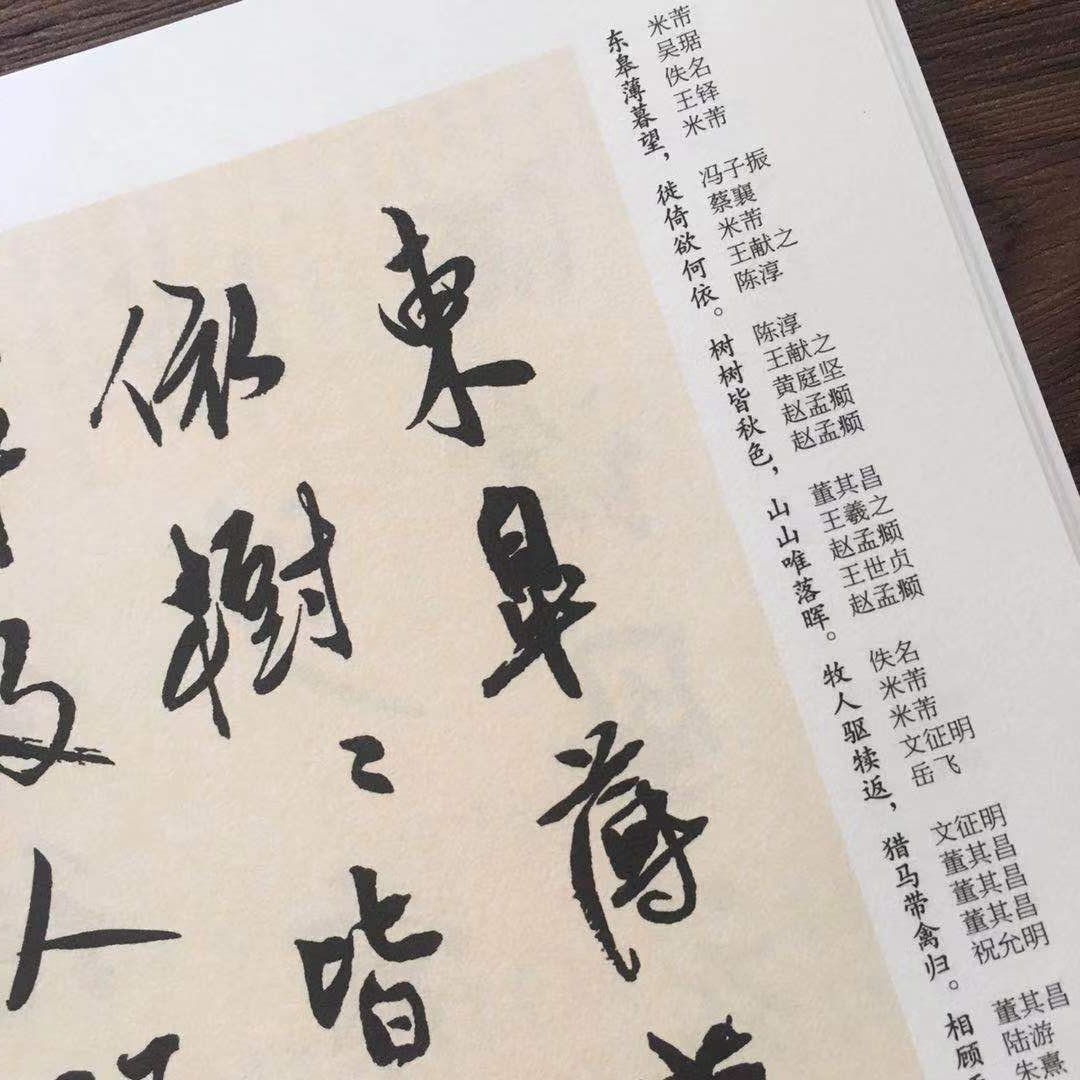 米芾
吴琚
佚名
王铎
米芾
冯子振
蔡襄
米芾
王献之
陈淳
陈淳
王献之
黄庭坚
赵孟𫖯
赵孟𫖯
董其昌
王羲之
赵孟𫖯
王世贞
赵孟𫖯
佚名
米芾
米芾
文征明
岳飞
文征明
董其昌
董其昌
董其昌
祝允明
董其昌
陆游
朱熹
东皋薄暮望，徙倚欲何依。树树皆秋色，山山唯落晖。牧人驱犊返，猎马带禽归。相顾
東皋薄
依樹〻皆
人